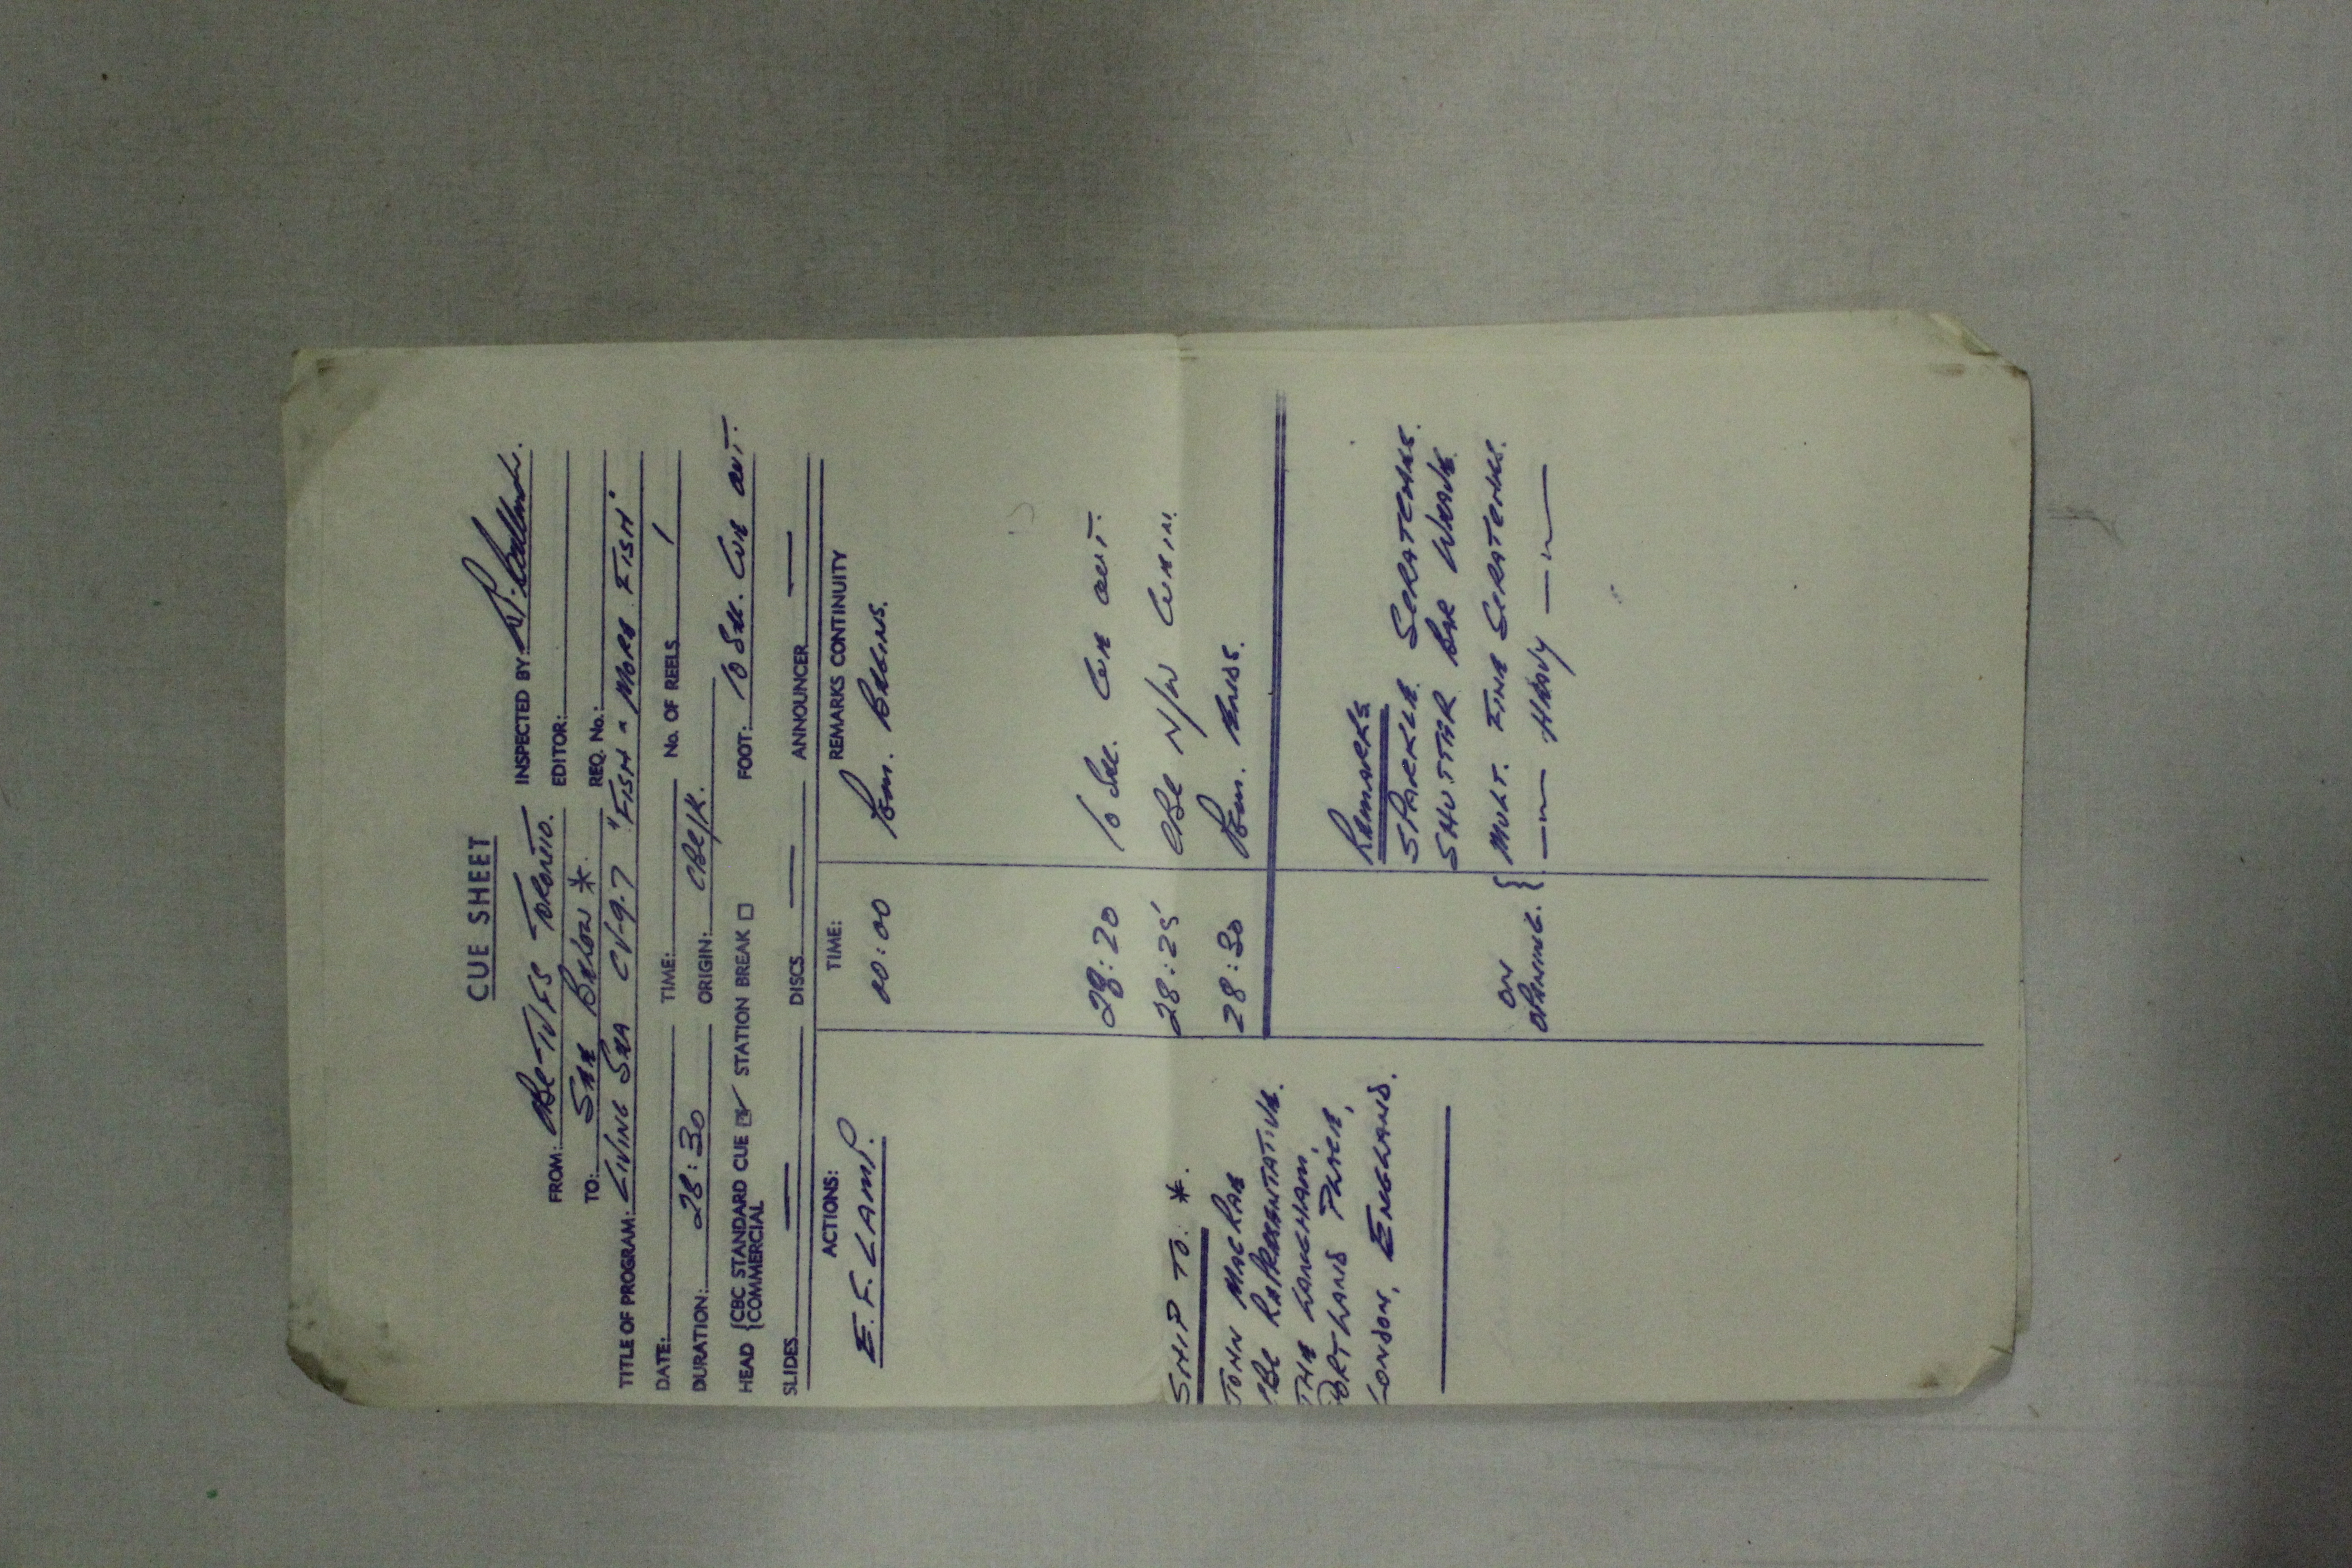 CUE SHEET
FROM: CBC-TVFS TORONTO. INSPECTED BY:
TO: SEE BELOW * EDITOR:
REQ. No.:
TITLE OF PROGRAM: LIVING SEA CV-9-7 "FISH & MORE FISH"
DATE: TIME: No. OF REELS 1
DURATION: 28:30 ORIGIN: CBC/K.
HEAD {CBC STANDARD CUE ☑ STATION BREAK ☐ FOOT: 10 SEC. CUE OUT.
{COMMERCIAL
SLIDES — DISCS — ANNOUNCER —
ACTIONS: TIME: REMARKS CONTINUITY
E.F. LAMP. 00:00 Pgm. BEGINS.
28:20 10 SEC. CUE OUT.
28:25 CBC N/W CUE IN.
28:30 Pgm. ENDS.
SHIP TO. *.
JOHN MACRAE
CBC REPRESENTATIVE.
THE LANGHAM,
PORTLAND PLACE,
LONDON, ENGLAND.
REMARKS
SPARKLE SCRATCHES.
SHUTTER BAR WEAVE
ON OPENING. { MULT. FINE SCRATCHES.
—〃— HEAVY —〃—